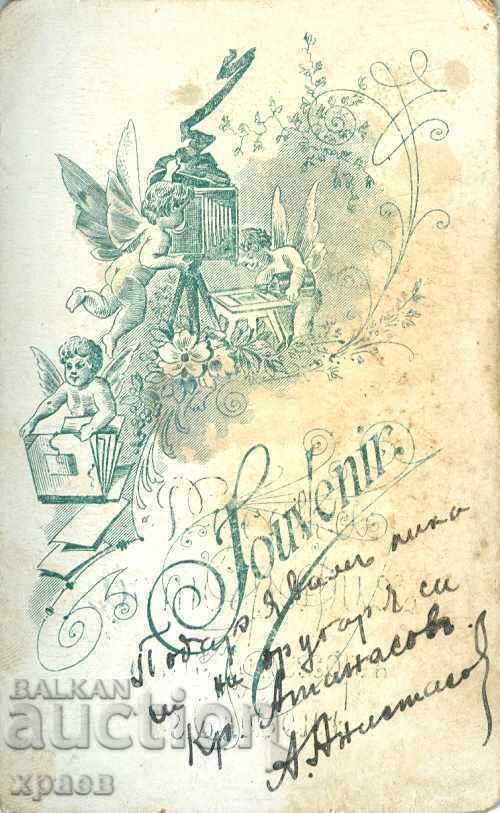 Souvenir.
Подарявамъ лика
си на другаря си
Кр. Атанасовъ.
А. Анастасов
BALKAN
auction
храов